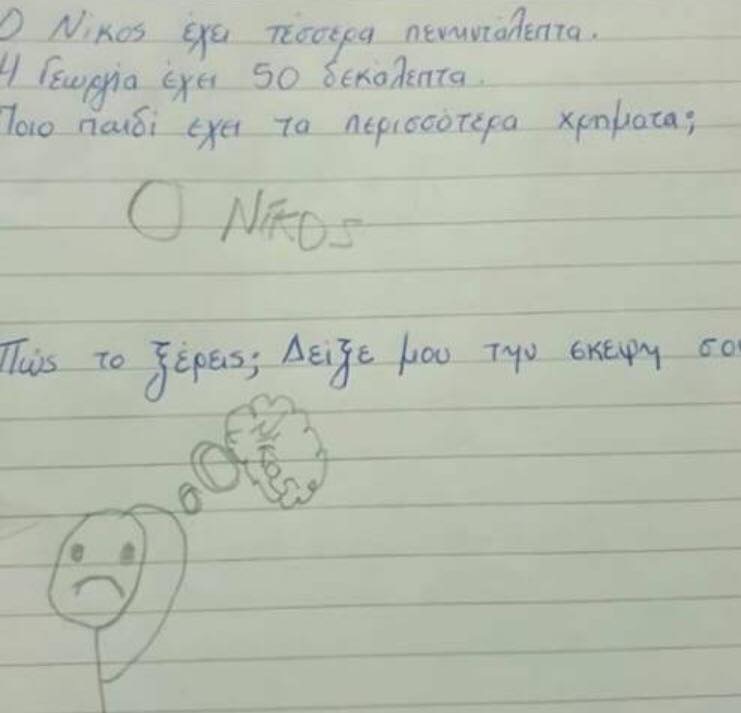 Ο Νίκος έχει τέσσερα πενηντάλεπτα.
Η Γεωργία έχει 50 δεκάλεπτα.
Ποιο παιδί έχει τα περισσότερα χρήματα;
Ο Νίκος
Πώς το ξέρεις; Δείξε μου την σκέψη σου